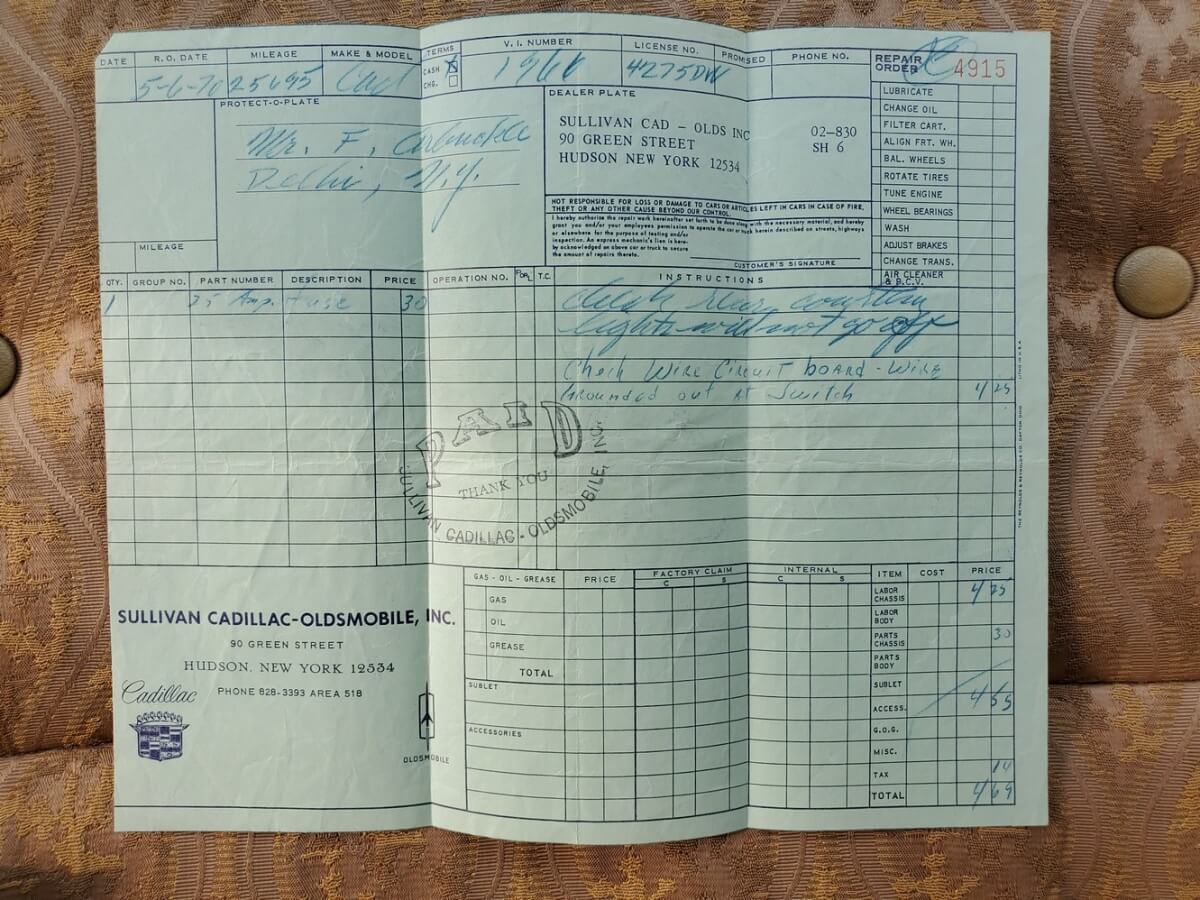 DATE R.O. DATE MILEAGE MAKE & MODEL TERMS V. I. NUMBER LICENSE NO. PROMISED PHONE NO. REPAIR ORDER 4915
5-6-70 25695 Cad CASH X CHG. 1968 4275DW
PROTECT-O-PLATE
Mr. F.
Delhi, N.Y.
MILEAGE
DEALER PLATE
SULLIVAN CAD – OLDS INC 02–830
90 GREEN STREET SH 6
HUDSON NEW YORK 12534
NOT RESPONSIBLE FOR LOSS OR DAMAGE TO CARS OR ARTICLES LEFT IN CARS IN CASE OF FIRE,
THEFT OR ANY OTHER CAUSE BEYOND OUR CONTROL.
I hereby authorize the repair work hereinafter set forth to be done along with the necessary material, and hereby
grant you and/or your employees permission to operate the car or truck herein described on streets, highways
or elsewhere for the purpose of testing and/or
inspection. An express mechanic's lien is here-
by acknowledged on above car or truck to secure
the amount of repairs thereto.
CUSTOMER'S SIGNATURE
LUBRICATE
CHANGE OIL
FILTER CART.
ALIGN FRT. WH.
BAL. WHEELS
ROTATE TIRES
TUNE ENGINE
WHEEL BEARINGS
WASH
ADJUST BRAKES
CHANGE TRANS.
AIR CLEANER
& P.C.V.
QTY. GROUP NO. PART NUMBER DESCRIPTION PRICE OPERATION NO. T.C. INSTRUCTIONS
1 25 Amp. Fuse 30
rear courtesy
lights will not go off
Check Wire Circuit board - Wire
Grounded out at Switch 4/25
PAID
THANK YOU
SULLIVAN CADILLAC - OLDSMOBILE, INC.
LITHO IN U.S.A.
THE REYNOLDS & REYNOLDS CO. DAYTON, OHIO
SULLIVAN CADILLAC-OLDSMOBILE, INC.
90 GREEN STREET
HUDSON, NEW YORK 12534
PHONE 828-3393 AREA 518
Cadillac
OLDSMOBILE
GAS - OIL - GREASE PRICE FACTORY CLAIM INTERNAL ITEM COST PRICE
C S C S
GAS
OIL
GREASE
TOTAL
SUBLET
ACCESSORIES
LABOR CHASSIS 4/25
LABOR BODY
PARTS CHASSIS 30
PARTS BODY
SUBLET
ACCESS. 4/55
G.O.G.
MISC.
TAX 14
TOTAL 4/69